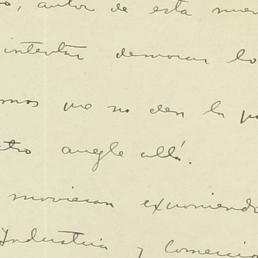 autor de esta nue
intentar demorar lo
mos que no den la p
tro angle allá.
movieran exponiendo
Industria y Comercio